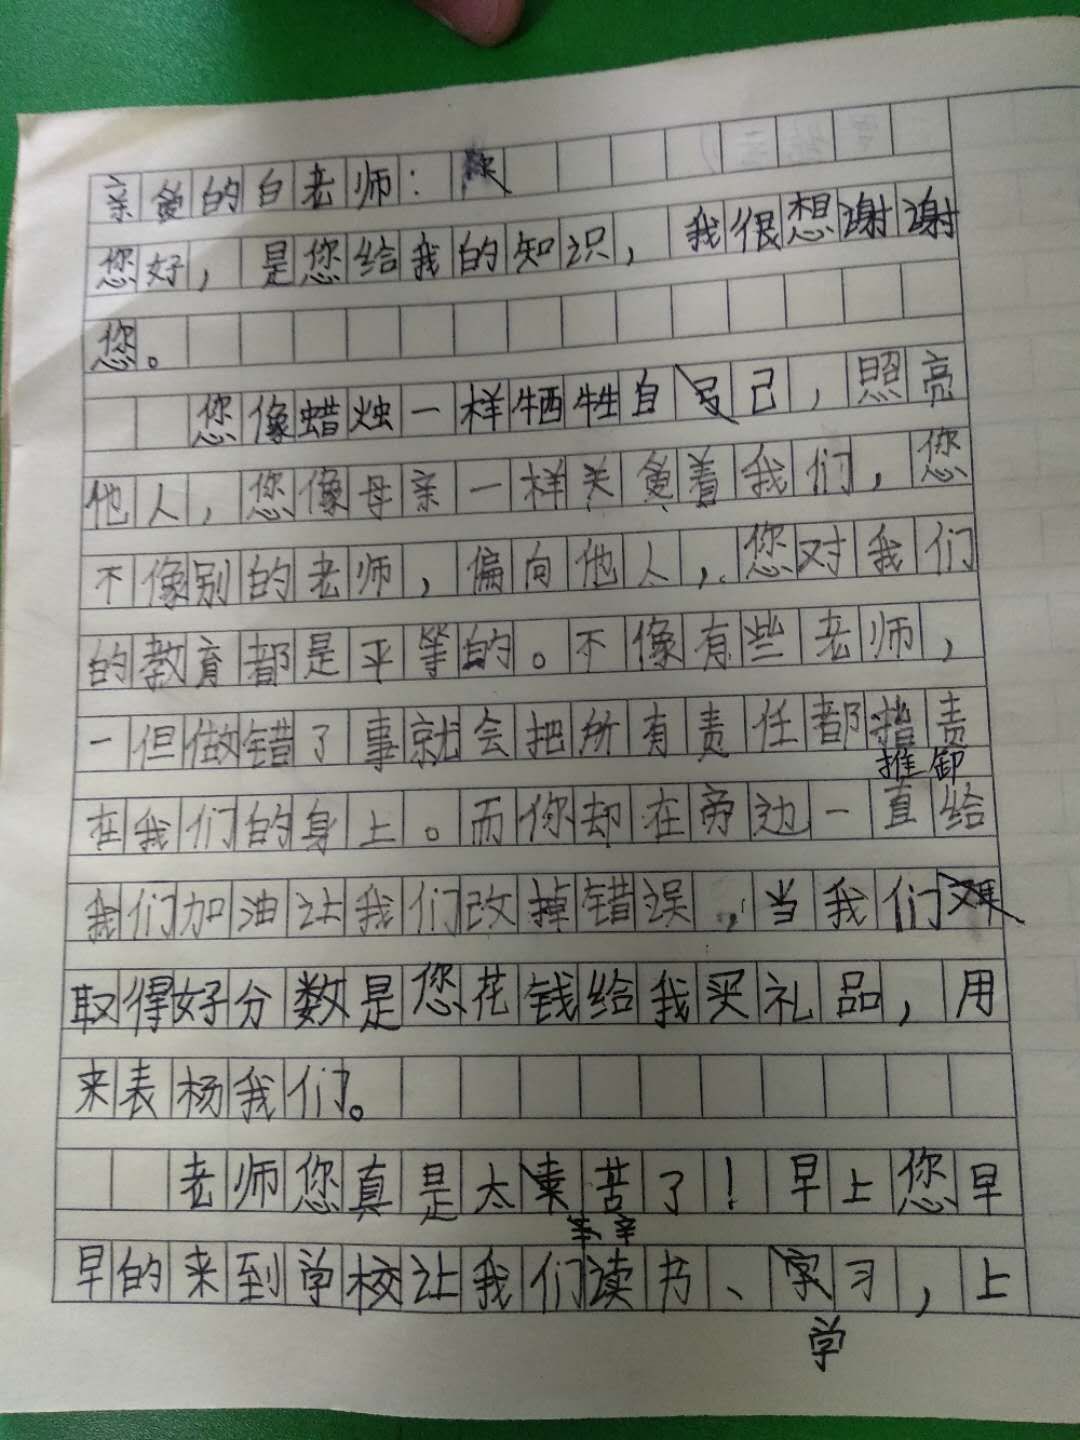 亲爱的白老师：
您好，是您给我的知识，我很想谢谢
您。
您像蜡烛一样牺牲自己，照亮
他人，您像母亲一样关爱着我们，您
不像别的老师，偏向他人，您对我们
的教育都是平等的。不像有些老师，
一但做错了事就会把所有责任都指责
推卸
在我们的身上。而你却在旁边一直给
我们加油让我们改掉错误，当我们
取得好分数是您花钱给我买礼品，用
来表杨我们。
老师您真是太苦了！早上您早
辛
早的来到学校让我们读书、习，上
学